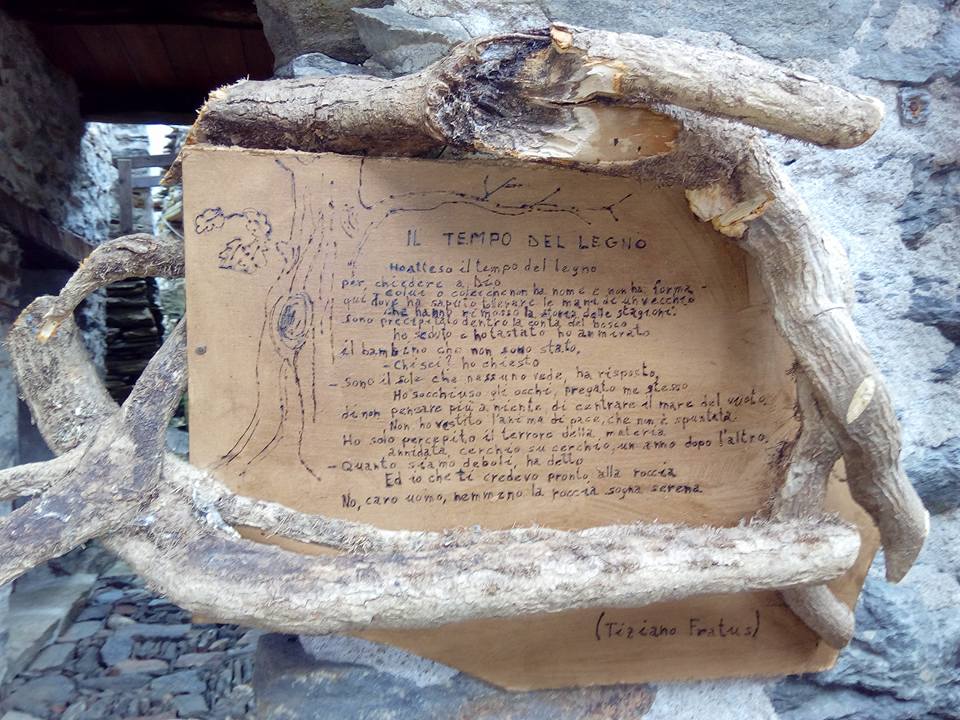 IL TEMPO DEL LEGNO
Ho atteso il tempo del legno
per chiedere a Dio
- colui o colei che non ha nome e non ha forma -
qui dove ha saputo tollerare le mani di un vecchio
che hanno rimosso la storia delle stagioni.
sono precipitato dentro la conta del bosco
ho e ho tastato ho ammirato
il bambino che non sono stato.
- Chi sei? ho chiesto
- Sono il sole che nessuno vede, ha risposto.
Ho socchiuso gli occhi, pregato me stesso
di non pensare più a niente di centrare il mare del vuoto.
Non ho vestito l'anima di pace, che non è spuntata.
Ho solo percepito il terrore della materia
annidata, cerchio su cerchio, un anno dopo l'altro.
- Quanto siamo deboli, ha detto
Ed io che ti credevo pronto alla roccia
No, caro uomo, nemmeno la roccia sogna serena
(Tiziano Fratus)